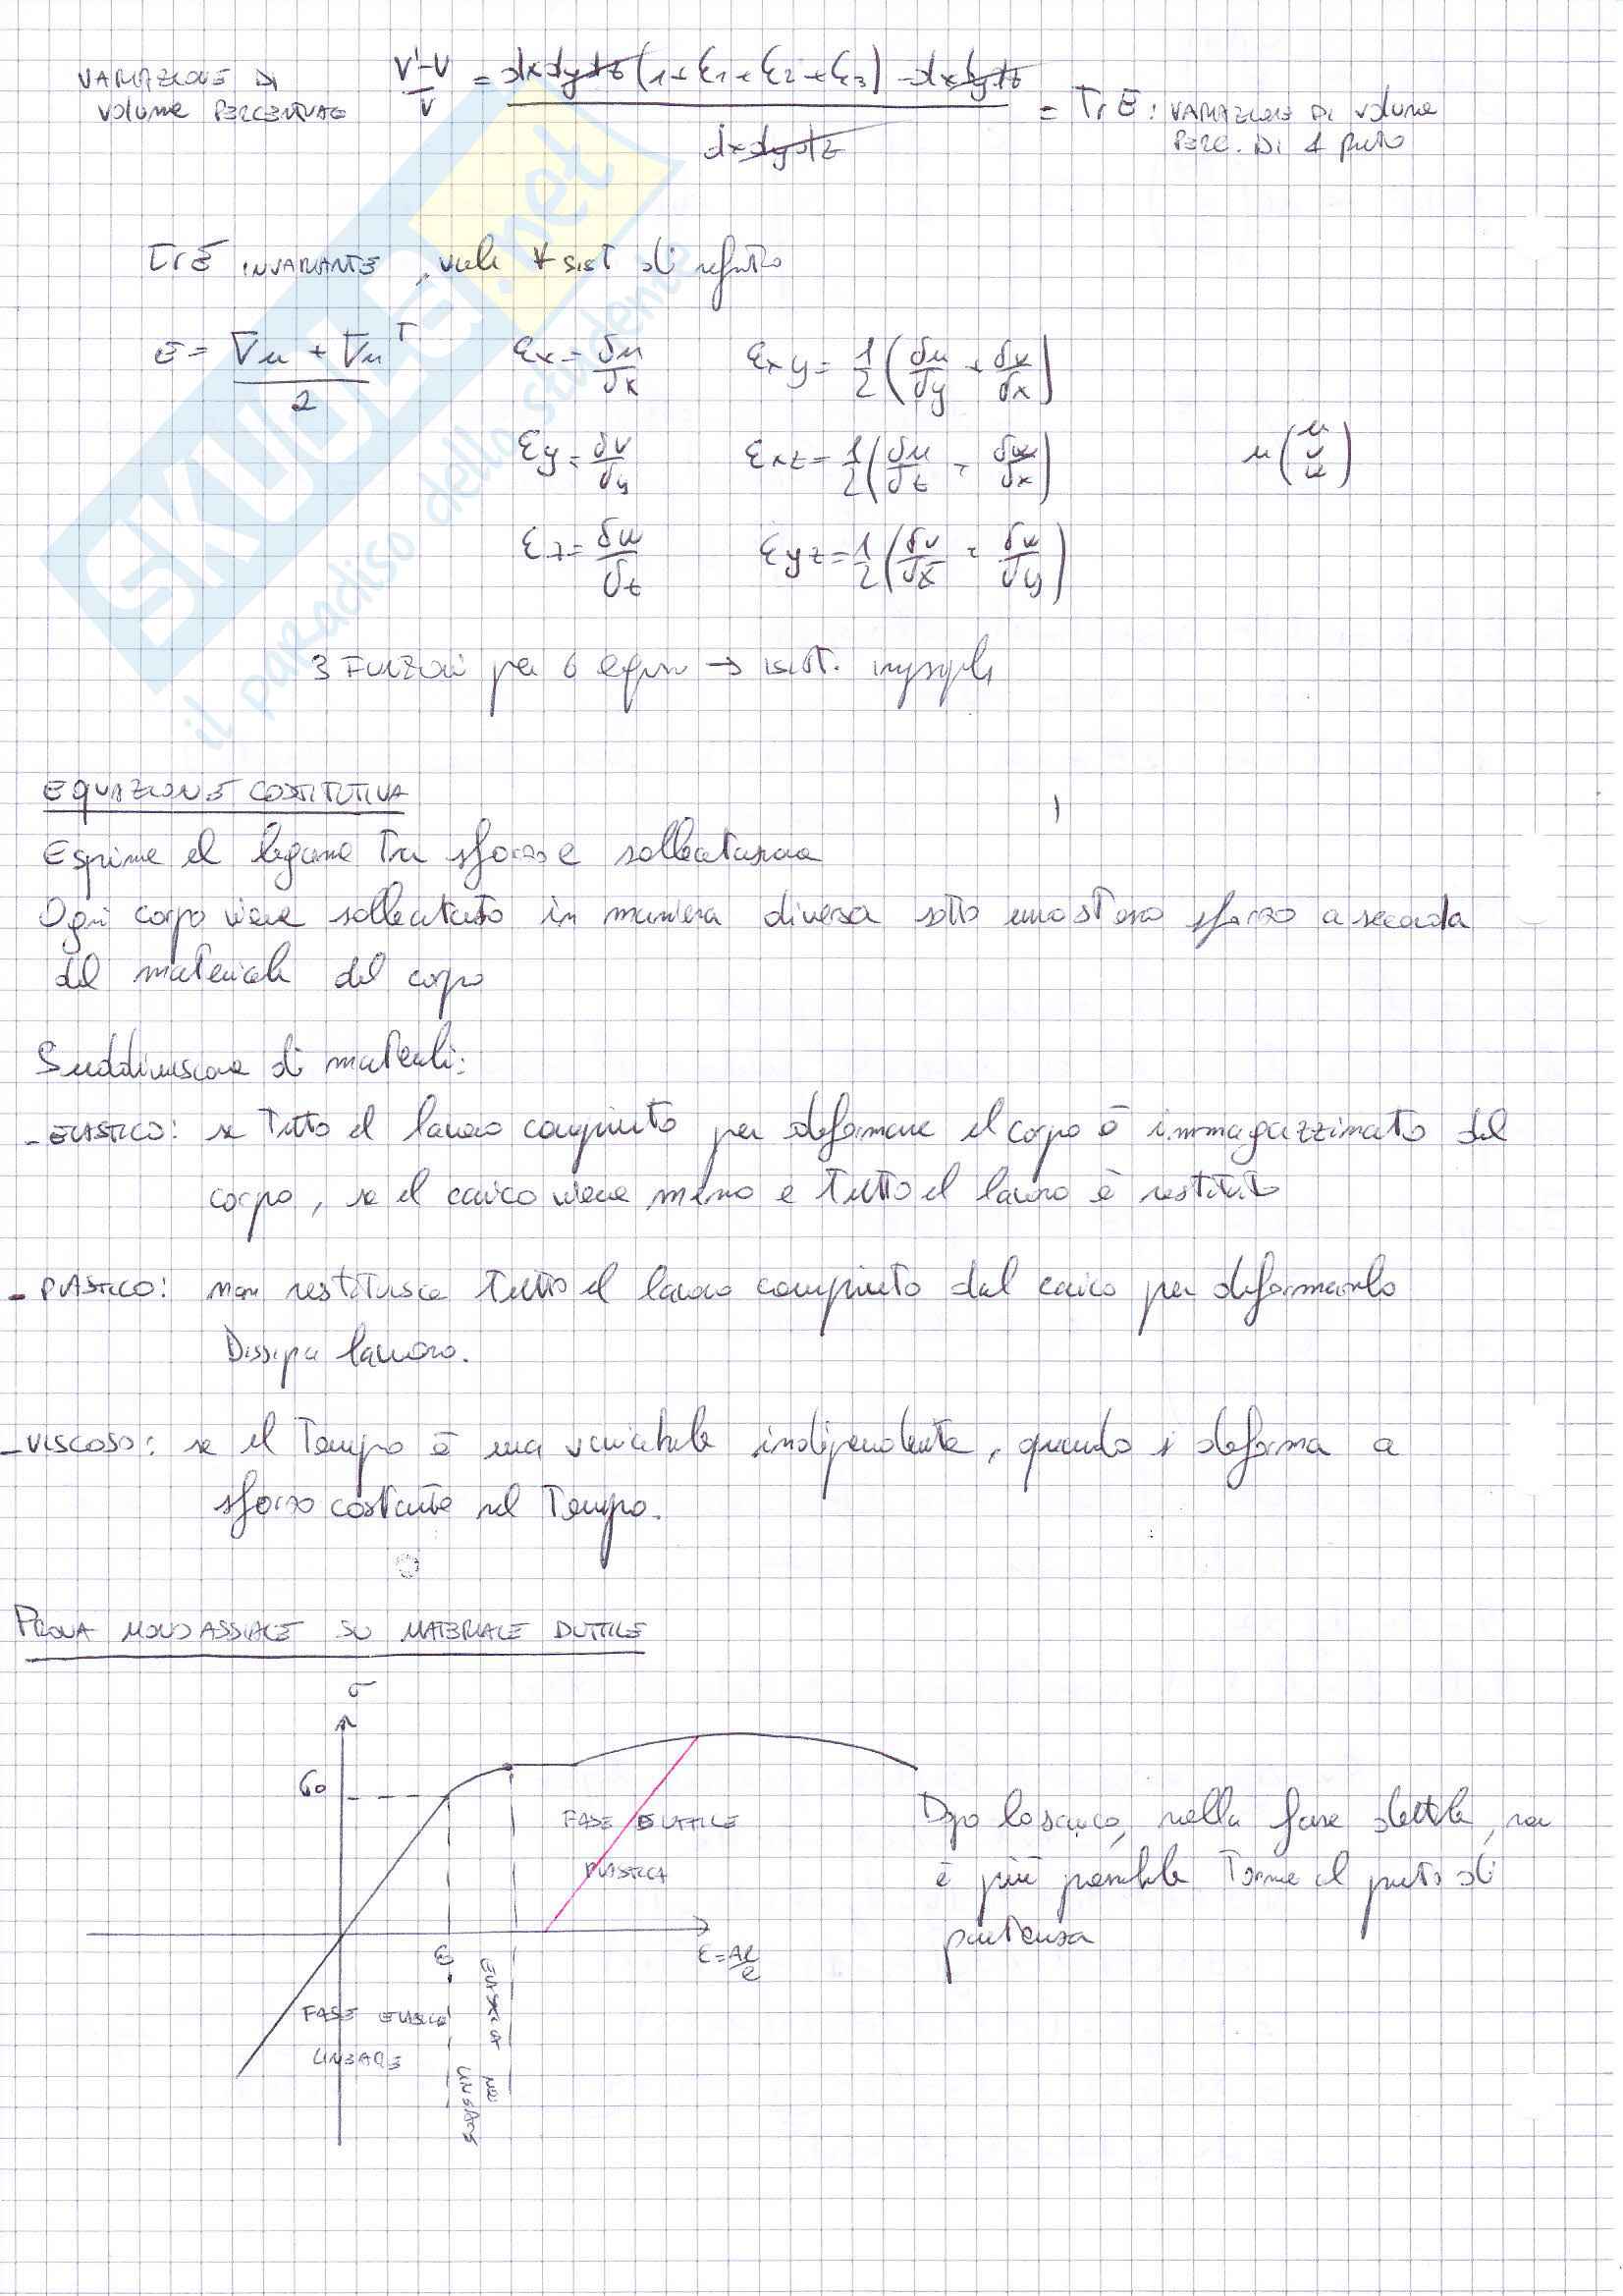 VARIAZIONE DI VOLUME PERCENTUALE V'-V / V = dxdydz(1+ε1+ε2+ε3) - dxdydz / dxdydz = Tr E : VARIAZIONE DI VOLUME PERC. DI 1 PUNTO
Tr E INVARIANTE, vale ∀ SIST di
E = ∇u + ∇u^T / 2
εx = δu/δx
εxy = 1/2 (δu/δy + δv/δx)
εy = δv/δy
εxz = 1/2 (δu/δz + δw/δx)
u (u v w)
εz = δw/δz
εyz = 1/2 (δv/δx + δw/δy)
3 FUNZIONI per 6 →
EQUAZIONE COSTITUTIVA
Esprime il legame tra sforzo e sollecitazione
Ogni corpo viene sollecitato in maniera diversa sotto uno stesso sforzo a seconda
del materiale del corpo
Suddivisione di materiali:
- ELASTICO: se tutto il lavoro compiuto per deformare il corpo è immagazzinato del
corpo, se il carico viene meno e tutto il lavoro è restituito
- PLASTICO: non restituisce tutto il lavoro compiuto dal carico per deformarlo
Dissipa lavoro.
- VISCOSO: se il tempo è una variabile indipendente, quando si deforma a
sforzo costante nel tempo.
PROVA MONOASSIALE SU MATERIALE DUTTILE
σ
σ0
FASE DUTTILE
PLASTICA
Dopo lo scarico, nella fase duttile, non
è più possibile tornare al punto di
partenza
ε0
ε = Δl/l
FASE ELASTICA
LINEARE
ELASTICA NON
LINEARE
SKUOLA.net
il paradiso dello studente